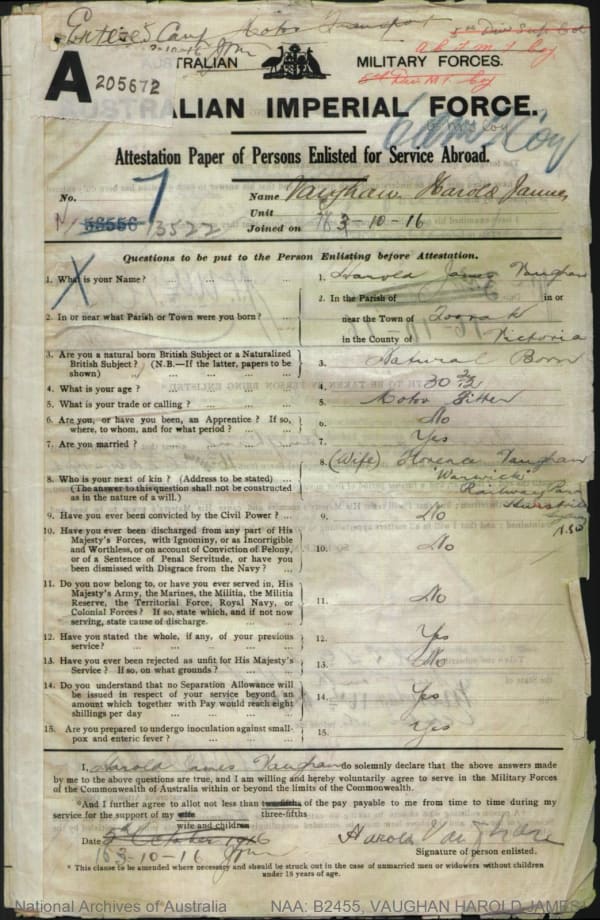 Enters Camp Motor Transport
5th Div Sup Col
A
205672
AUSTRALIAN MILITARY FORCES.
AUSTRALIAN IMPERIAL FORCE.
Attestation Paper of Persons Enlisted for Service Abroad.
No. Name Vaughan. Harold James
Unit
58556 13522 Joined on 3-10-16
Questions to be put to the Person Enlisting before Attestation.
1. What is your Name? ... 1. Harold James Vaughan
2. In or near what Parish or Town were you born? ... 2. In the Parish of in or
near the Town of Toorak
in the County of Victoria
3. Are you a natural born British Subject or a Naturalized
British Subject? (N.B.—If the latter, papers to be
shown) 3. Natural Born
4. What is your age? ... 4. 30
5. What is your trade or calling? ... 5. Motor Fitter
6. Are you, or have you been, an Apprentice? If so,
where, to whom, and for what period? ... 6. No
7. Are you married? ... 7. Yes
8. Who is your next of kin? (Address to be stated) ...
(The answer to this question shall not be constructed
as in the nature of a will.)
8. (Wife) Florence Vaughan
'Warwick'
Railway Pde
9. Have you ever been convicted by the Civil Power? ... 9. No
10. Have you ever been discharged from any part of His
Majesty's Forces, with Ignominy, or as Incorrigible
and Worthless, or on account of Conviction of Felony,
or of a Sentence of Penal Servitude, or have you
been dismissed with Disgrace from the Navy? ... 10. No
11. Do you now belong to, or have you ever served in, His
Majesty's Army, the Marines, the Militia, the Militia
Reserve, the Territorial Force, Royal Navy, or
Colonial Forces? If so, state which, and if not now
serving, state cause of discharge. 11. No
12. Have you stated the whole, if any, of your previous
service? ... 12. Yes
13. Have you ever been rejected as unfit for His Majesty's
Service? If so, on what grounds? ... 13. No
14. Do you understand that no Separation Allowance will
be issued in respect of your service beyond an
amount which together with Pay would reach eight
shillings per day ... 14. Yes
15. Are you prepared to undergo inoculation against small-
pox and enteric fever? ... 15. Yes
I, Harold James Vaughan do solemnly declare that the above answers made
by me to the above questions are true, and I am willing and hereby voluntarily agree to serve in the Military Forces
of the Commonwealth of Australia within or beyond the limits of the Commonwealth.
*And I further agree to allot not less than two-fifths of the pay payable to me from time to time during my
service for the support of my wife three-fifths
wife and children
Date 5th October 1916 Harold Vaughan
3-10-16 Signature of person enlisted.
* This clause to be amended where necessary and should be struck out in the case of unmarried men or widowers without children
under 18 years of age.
National Archives of Australia NAA: B2455, VAUGHAN HAROLD JAMES